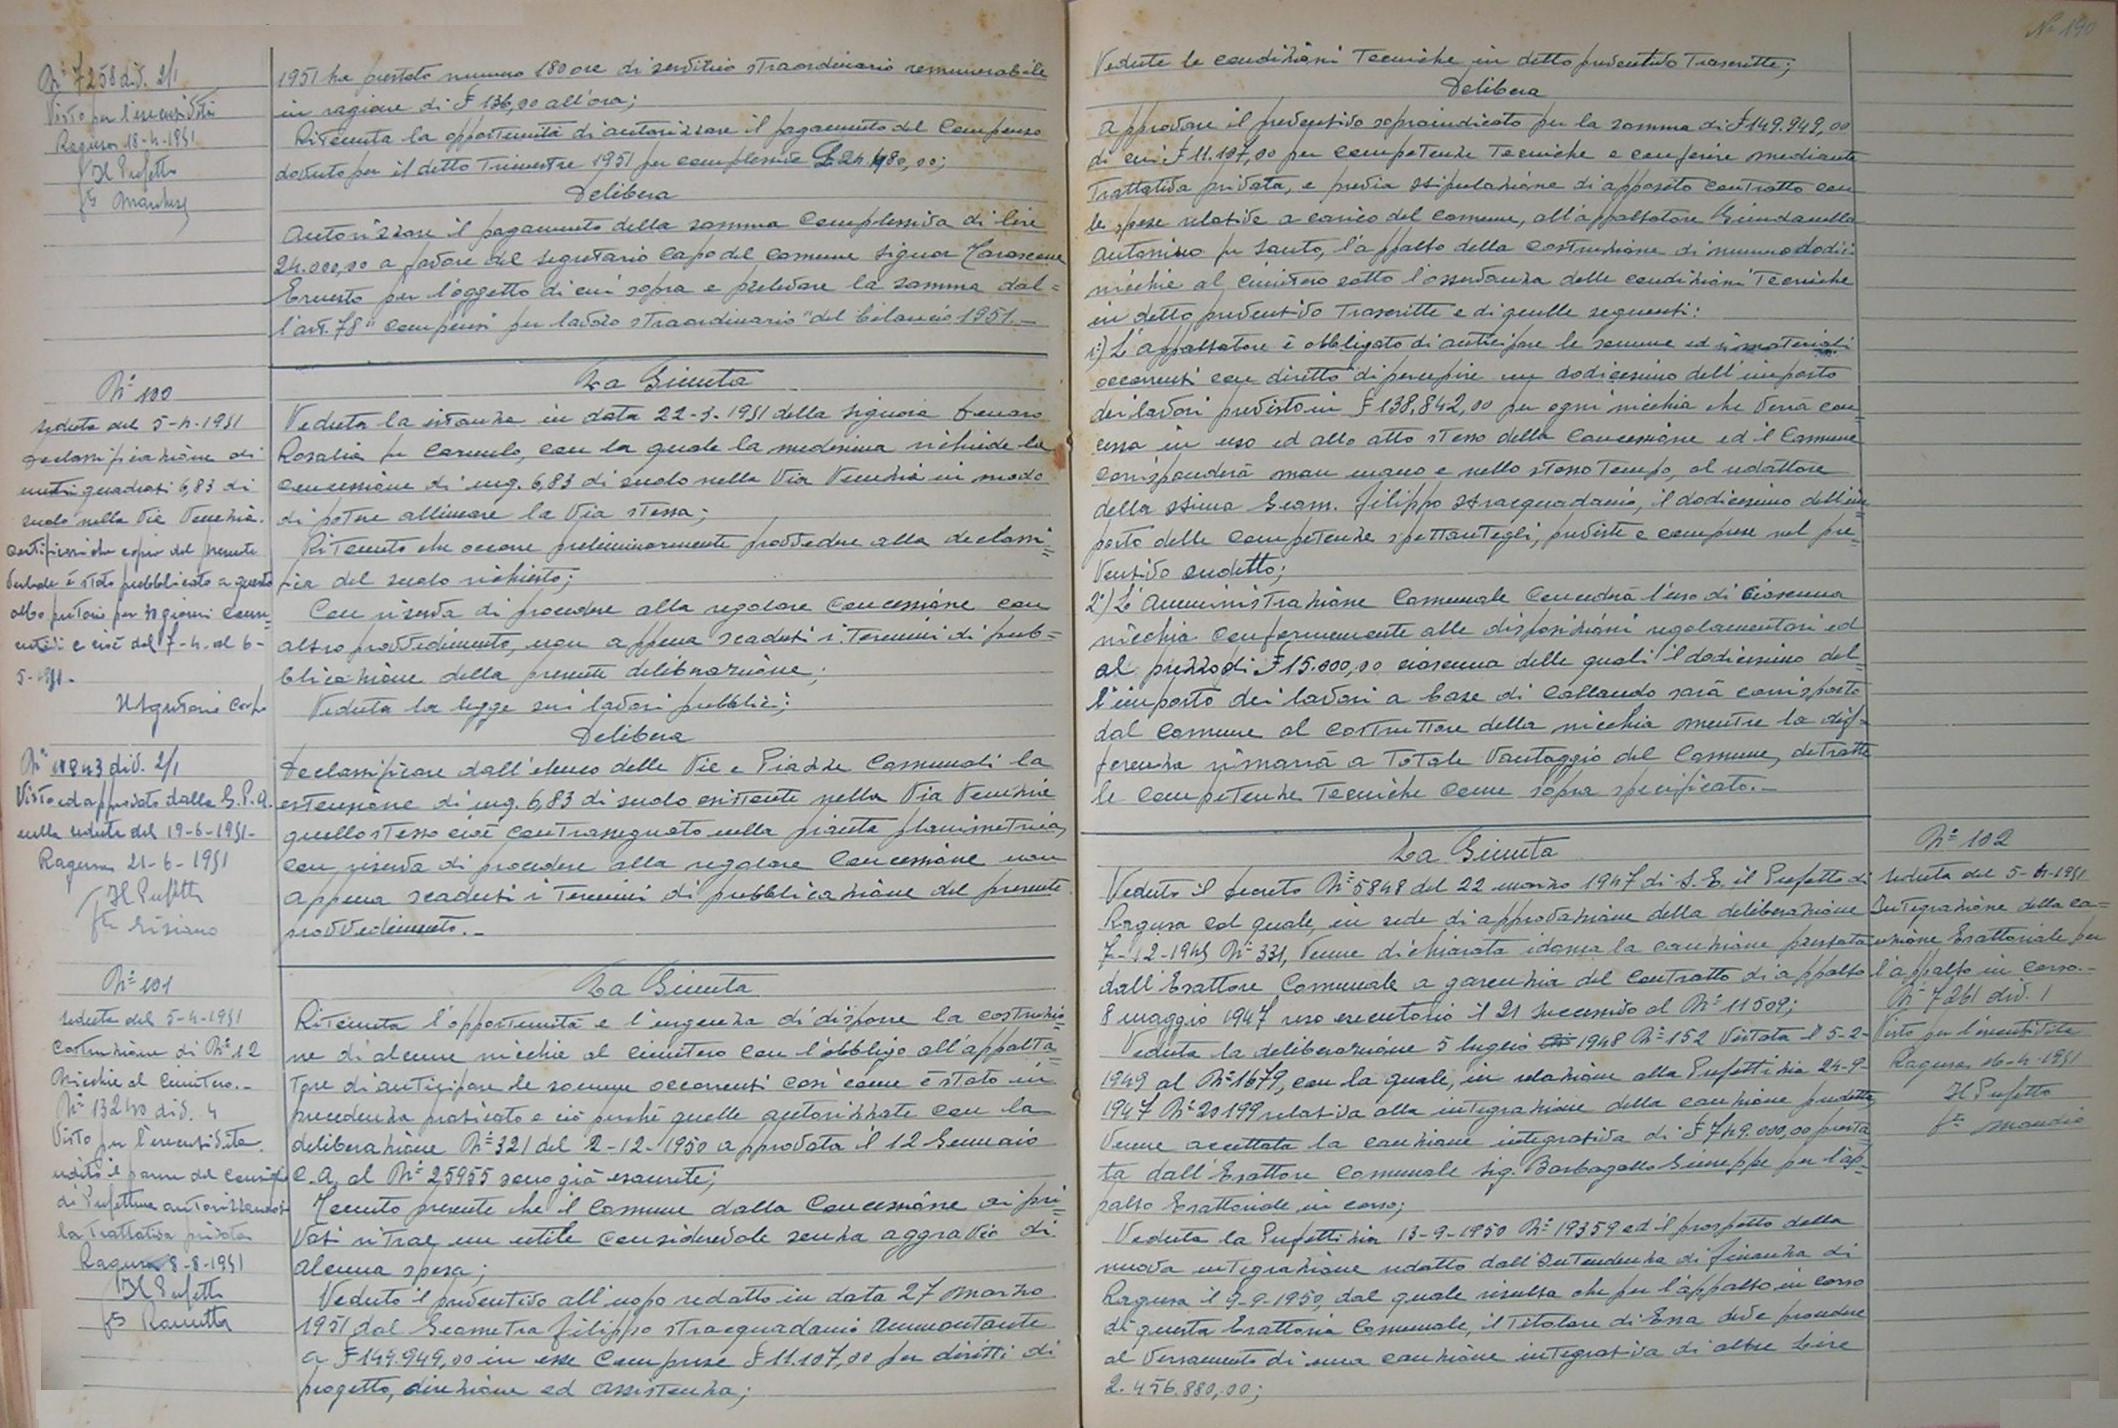 N° 7258 div. 2/1
Visto per l'esecutività
Ragusa 18-4-1951
Il Prefetto
1951 ha prestato numero 180 ore di servizio straordinario remunerabile
in ragione di £ 136,00 all'ora;
Ritenuta la opportunità di autorizzare il pagamento del compenso
dovuto per il detto Trimestre 1951 per complessive £ 24.480,00;
Delibera
Autorizzare il pagamento della somma complessiva di lire
24.000,00 a favore del segretario capo del comune signor
Ernesto per l'oggetto di cui sopra e prelevare la somma dal=
l'art. 78 "compensi per lavoro straordinario" del bilancio 1951.—
N° 100
seduta del 5-4-1951
Declassificazione di
metri quadrati 6,83 di
suolo nella Via Venezia.
Certificasi che copia del presente
verbale è stato pubblicato a questo
albo pretorio per 30 giorni conse=
cutivi e cioè dal 7-4- al 6-
5-1951.
Il Segretario Capo
N° 11843 div. 2/1
Visto ed approvato dalla G.P.A.
nella seduta del 19-6-1951-
Ragusa 21-6-1951
Il Prefetto
La Giunta
Veduta la istanza in data 22-3-1951 della signora
Rosalia fu Carmelo, con la quale la medesima richiede la
concessione di mq. 6,83 di suolo nella Via Venezia in modo
di potere allineare la Via stessa;
Ritenuto che occorre preliminarmente provvedere alla declassi=
fica del suolo richiesto;
Con riserva di procedere alla regolare concessione con
altro provvedimento, non appena scaduti i Termini di pub=
blicazione della presente deliberazione;
Veduta la legge sui lavori pubblici;
Delibera
Declassificare dall'elenco delle Vie e Piazze Comunali la
estensione di mq. 6,83 di suolo esistente nella Via Venezia
quello stesso cioè contrassegnato nella pianta planimetrica,
con riserva di procedere alla regolare Concessione non
appena scaduti i Termini di pubblicazione del presente
provvedimento.—
N° 101
seduta del 5-4-1951
Costruzione di N° 12
Nicchie al Cimitero.—
N° 13240 div. 4
Visto per l'esecutività
udito il parere del Consiglio
di Prefettura autorizzandosi
la Trattativa privata
Ragusa 8-8-1951
Il Prefetto
La Giunta
Ritenuta l'opportunità e l'urgenza di disporre la costruzio=
ne di alcune nicchie al cimitero con l'obbligo all'appalta=
tore di anticipare le somme occorrenti così come è stato in
precedenza praticato e ciò perché quelle autorizzate con la
deliberazione N° 321 del 2-12-1950 approvata il 12 Gennaio
c.a. al N° 25955 sono già esaurite;
Tenuto presente che il Comune dalla Concessione ai pri=
vati ritrae un utile considerevole senza aggravio di
alcuna spesa;
Veduto il preventivo all'uopo redatto in data 27 marzo
1951 dal Geometra Filippo Stracquadanio ammontante
a £ 149.949,00 in esse comprese £ 11.107,00 per diritti di
progetto, direzione ed assistenza;
N° 190
Vedute le condizioni Tecniche in detto preventivo Trascritte;
Delibera
Approvare il preventivo sopraindicato per la somma di £ 149.949,00
di cui £ 11.107,00 per competenze Tecniche e conferire mediante
Trattativa privata, e previa stipulazione di apposito contratto con
le spese relative a carico del comune, all'appaltatore
Antonino fu Santo, l'appalto della costruzione di numero dodici
nicchie al cimitero sotto l'osservanza delle condizioni Tecniche
in detto preventivo Trascritte e di quelle seguenti:
1°) L'appaltatore è obbligato di anticipare le somme ed i materiali
occorrenti con diritto di percepire un dodicesimo dell'importo
dei lavori previsto in £ 138.842,00 per ogni nicchia che verrà con=
cessa in uso ed allo atto stesso della Concessione ed il Comune
corrisponderà man mano e nello stesso Tempo, al redattore
della stima Geom. Filippo Stracquadanio, il dodicesimo dell'im=
porto delle competenze spettantegli, previste e comprese nel pre=
ventivo suddetto;
2°) L'Amministrazione Comunale concederà l'uso di ciascuna
nicchia conformemente alle disposizioni regolamentari ed
al prezzo di £ 15.000,00 ciascuna delle quali il dodicesimo del=
l'importo dei lavori a base di collaudo sarà corrisposto
dal Comune al costruttore della nicchia mentre la dif=
ferenza rimarrà a Totale vantaggio del Comune, detratte
le competenze Tecniche come sopra specificato.—
La Giunta
Veduto il decreto N° 5848 del 22 marzo 1947 di S.E. il Prefetto di
Ragusa col quale, in sede di approvazione della deliberazione
7-12-1945 N° 331, venne dichiarata idonea la cauzione prestata
dall'Esattore Comunale a garenzia del contratto di appalto
8 maggio 1947 reso esecutorio il 21 successivo al N° 11509;
Veduta la deliberazione 5 luglio 1948 N° 152 vistata il 5-2-
1949 al N° 1679, con la quale, in relazione alla Prefettizia 24-9-
1947 N° 20199 relativa alla integrazione della cauzione predetta,
venne accettata la cauzione integrativa di £ 749.000,00 presta=
ta dall'Esattore Comunale Sig. Barbagallo Giuseppe per l'ap=
palto Esattoriale in corso;
Veduta la Prefettizia 13-9-1950 N° 19359 ed il prospetto della
nuova integrazione redatto dall'Intendenza di Finanza di
Ragusa il 9-9-1950, dal quale risulta che per l'appalto in corso
di questa Esattoria Comunale, il Titolare di Essa deve procedere
al versamento di una cauzione integrativa di altre Lire
2.456.880,00;
N° 102
seduta del 5-4-1951
Integrazione della ca=
uzione Esattoriale per
l'appalto in corso.—
N° 7261 div. 1
Visto per l'esecutività
Ragusa 16-4-1951
Il Prefetto